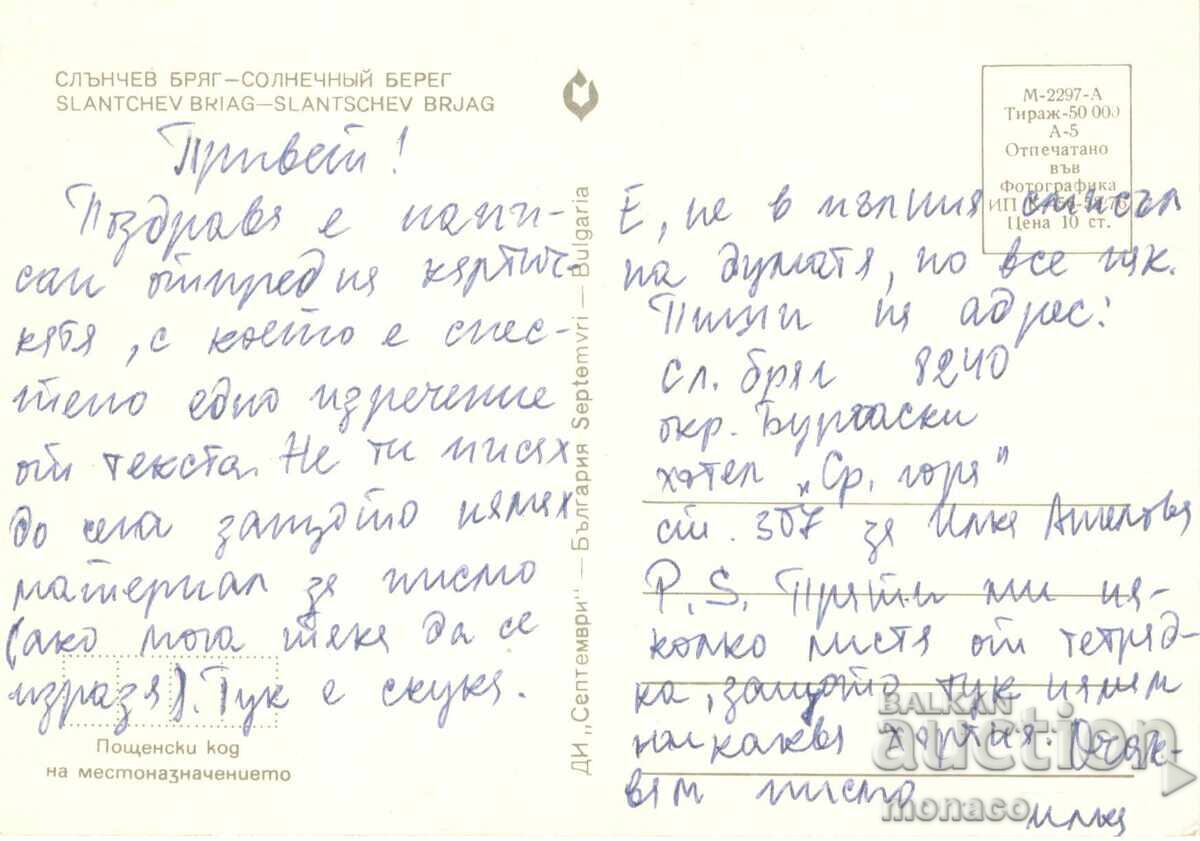 СЛЪНЧЕВ БРЯГ—СОЛНЕЧНЫЙ БЕРЕГ
SLANTCHEV BRIAG—SLANTSCHEV BRJAG
Привет!
Поздрава е напи-
сан отпред на картич-
ката, с което е спес-
тено едно изречение
от текста. Не ти писах
до сега защото нямах
материал за писмо
(ако мога така да се
изразя). Тук е скука.
Пощенски код
на местоназначението
ДИ „Септември" — България Septemvri — Bulgaria
М-2297-А
Тираж-50 000
А-5
Отпечатано
във
Фотографика
ИП
Цена 10 ст.
Е, не в пълния смисъл
на думата, но все пак.
Пиши на адрес:
Сл. бряг 8240
окр. Бургаски
хотел „Ср. гора"
ст. 307 за Илка Ангелова
P.S. Прати ми ня-
колко листа от тетрад-
ка, защото тук нямам
никаква хартия. Очак-
вам писмо
Илка
BALKAN
auction
monaco